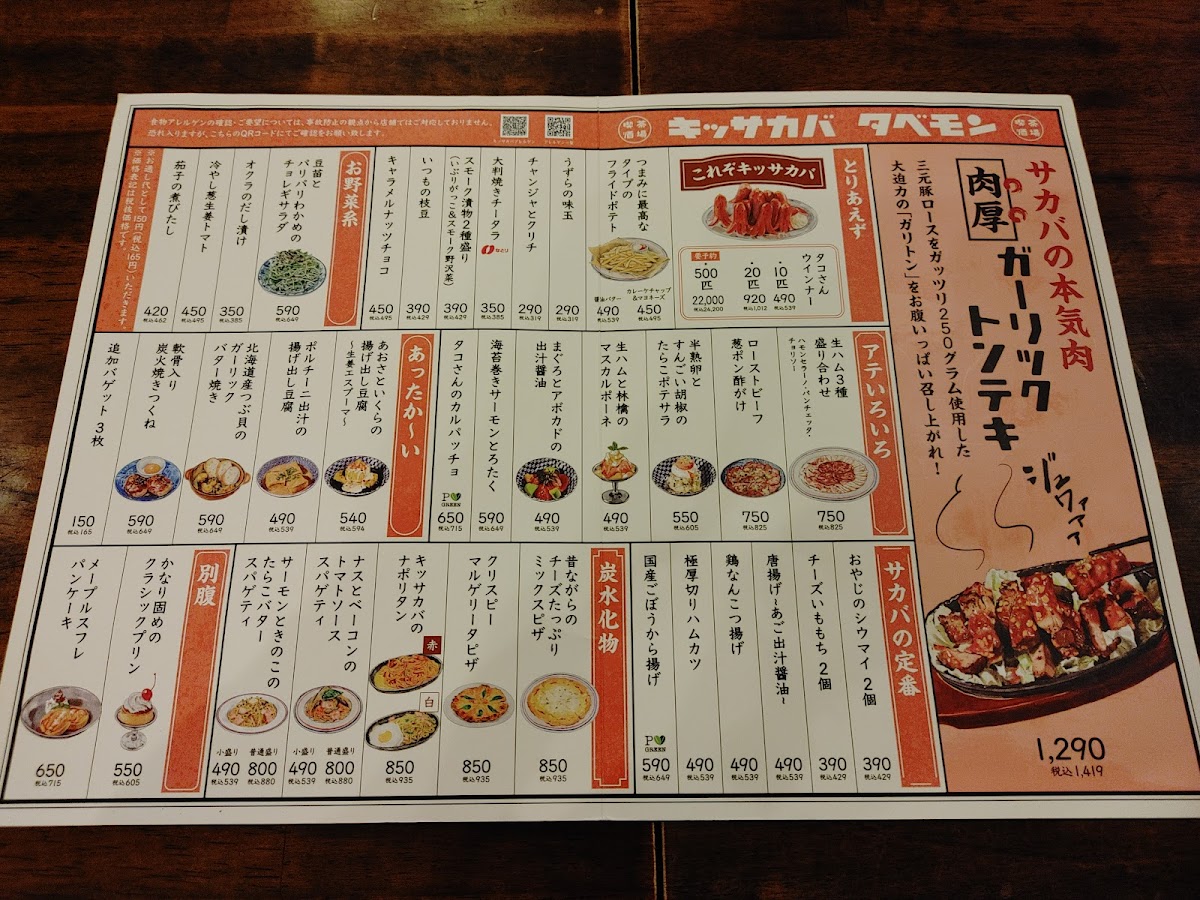 食物アレルゲンの確認・ご要望については、事故防止の観点から店舗ではご対応しておりません。
恐れ入りますが、こちらのQRコードにてご確認をお願い致します。
喫茶
酒場
キッサカバ タベモン
喫茶
酒場
サカバの本気肉
肉厚
ガーリック
トンテキ
三元豚ロースをガッツリ250グラム使用した
大迫力の「ガリトン」をお腹いっぱい召し上がれ!
ジュウァァァ
1,290
税込1,419
とりあえず
これぞキッサカバ
タコさん
ウインナー
・10匹
490
税込539
・20匹
920
税込1,012
要予約
・500匹
22,000
税込24,200
つまみに最高な
3タイプの
フライドポテト
カレーケチャップ
&マヨネーズ
450
税込495
醤油バター
490
税込539
うずらの味玉
290
税込319
チャンジャとクリチ
290
税込319
大判焼きチータラ
なとり
350
税込385
スモーク漬物2種盛り
(いぶりがっこ&スモーク野沢菜)
390
税込429
いつもの枝豆
390
税込429
キャラメルナッツチョコ
450
税込495
お野菜系
豆苗と
パリパリわかめの
チョレギサラダ
590
税込649
オクラのだし漬け
350
税込385
冷やし葱生姜トマト
450
税込495
茄子の煮びたし
420
税込462
※お通し代として150円(税込165円)いただきます。
※価格表記は税抜価格です。
アテいろいろ
生ハム3種
盛り合わせ
ハモンセラーノ・パンチェッタ・
チョリソー
750
税込825
ローストビーフ
葱ポン酢がけ
750
税込825
半熟卵と
すんごい胡椒の
たらこポテサラ
550
税込605
生ハムと林檎の
マスカルポーネ
490
税込539
まぐろとアボカドの
出汁醤油
490
税込539
海苔巻きサーモンとろたく
590
税込649
タコさんのカルパッチョ
GREEN
650
税込715
あったか〜い
あおさといくらの
揚げ出し豆腐
〜生姜エスプーマ〜
540
税込594
ポルチーニ出汁の
揚げ出し豆腐
490
税込539
北海道産つぶ貝の
ガーリック
バター焼き
590
税込649
軟骨入り
炭火焼きつくね
590
税込649
追加バゲット3枚
150
税込165
サカバの定番
おやじのシウマイ2個
390
税込429
チーズいももち2個
390
税込429
唐揚げ〜あご出汁醤油〜
490
税込539
鶏なんこつ揚げ
490
税込539
極厚切りハムカツ
490
税込539
国産ごぼうから揚げ
GREEN
590
税込649
炭水化物
昔ながらの
チーズたっぷり
ミックスピザ
850
税込935
クリスピー
マルゲリータピザ
850
税込935
キッサカバの
ナポリタン
赤
白
850
税込935
ナスとベーコンの
トマトソース
スパゲティ
普通盛り
800
税込880
小盛り
490
税込539
サーモンときのこの
たらこバター
スパゲティ
普通盛り
800
税込880
小盛り
490
税込539
別腹
かなり固めの
クラシックプリン
550
税込605
メープルスフレ
パンケーキ
650
税込715